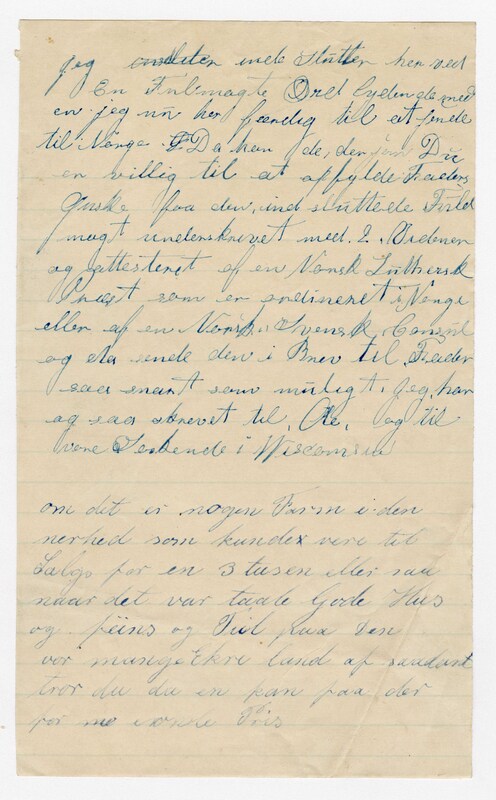 jeg inde slutter her ved
En Fulmagts Ord lydende med
en jeg nu her færdig til at sende
til Norge. Da han de, der som Du
er villig til at opfylde Faders
Ønske faa den ind sluttede Fuld
magt underskrevet med 2 Videner
og attesteret af en Norsk Luthersk
Præst som er ordineret i Norge
eller af en Norsk, Svensk, Consul
og da sende den i Brev til Fader
saa snart som muligt. Jeg har
og saa skrevet til, Ole, og til
vore Søskende i Wisconsin
om det er nogen Farm i den
nerhed som kunde vere til
Salgs for en 3 tusen eller saa
naar det var Gode Hus
og og paa den
vor mange Ekre land af saadant
tror du da en kan faa der
for Pris